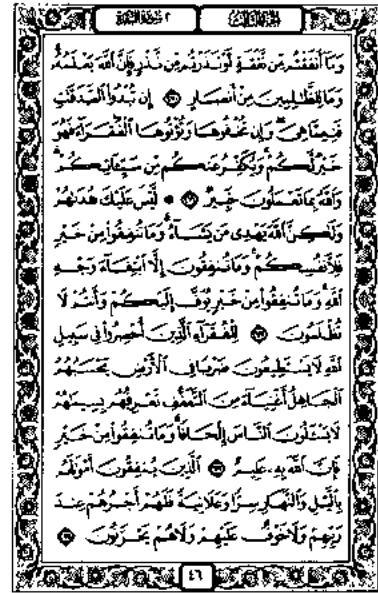 الجزء الثالث
٢ سورة البقرة
وَمَا أَنفَقْتُم مِّن نَّفَقَةٍ أَوْ نَذَرْتُم مِّن نَّذْرٍ فَإِنَّ ٱللَّهَ يَعْلَمُهُۥ
وَمَا لِلظَّـٰلِمِينَ مِنْ أَنصَارٍ ٢٧٠ إِن تُبْدُوا۟ ٱلصَّدَقَـٰتِ
فَنِعِمَّا هِىَ وَإِن تُخْفُوهَا وَتُؤْتُوهَا ٱلْفُقَرَآءَ فَهُوَ
خَيْرٌ لَّكُمْ وَيُكَفِّرُ عَنكُم مِّن سَيِّـَٔاتِكُمْ
وَٱللَّهُ بِمَا تَعْمَلُونَ خَبِيرٌ ٢٧١ ۞ لَّيْسَ عَلَيْكَ هُدَىٰهُمْ
وَلَـٰكِنَّ ٱللَّهَ يَهْدِى مَن يَشَآءُ وَمَا تُنفِقُوا۟ مِنْ خَيْرٍ
فَلِأَنفُسِكُمْ وَمَا تُنفِقُونَ إِلَّا ٱبْتِغَآءَ وَجْهِ
ٱللَّهِ وَمَا تُنفِقُوا۟ مِنْ خَيْرٍ يُوَفَّ إِلَيْكُمْ وَأَنتُمْ لَا
تُظْلَمُونَ ٢٧٢ لِلْفُقَرَآءِ ٱلَّذِينَ أُحْصِرُوا۟ فِى سَبِيلِ
ٱللَّهِ لَا يَسْتَطِيعُونَ ضَرْبًا فِى ٱلْأَرْضِ يَحْسَبُهُمُ
ٱلْجَاهِلُ أَغْنِيَآءَ مِنَ ٱلتَّعَفُّفِ تَعْرِفُهُم بِسِيمَـٰهُمْ
لَا يَسْـَٔلُونَ ٱلنَّاسَ إِلْحَافًا وَمَا تُنفِقُوا۟ مِنْ خَيْرٍ
فَإِنَّ ٱللَّهَ بِهِۦ عَلِيمٌ ٢٧٣ ٱلَّذِينَ يُنفِقُونَ أَمْوَٰلَهُم
بِٱلَّيْلِ وَٱلنَّهَارِ سِرًّا وَعَلَانِيَةً فَلَهُمْ أَجْرُهُمْ عِندَ
رَبِّهِمْ وَلَا خَوْفٌ عَلَيْهِمْ وَلَا هُمْ يَحْزَنُونَ ٢٧٤
٤٦